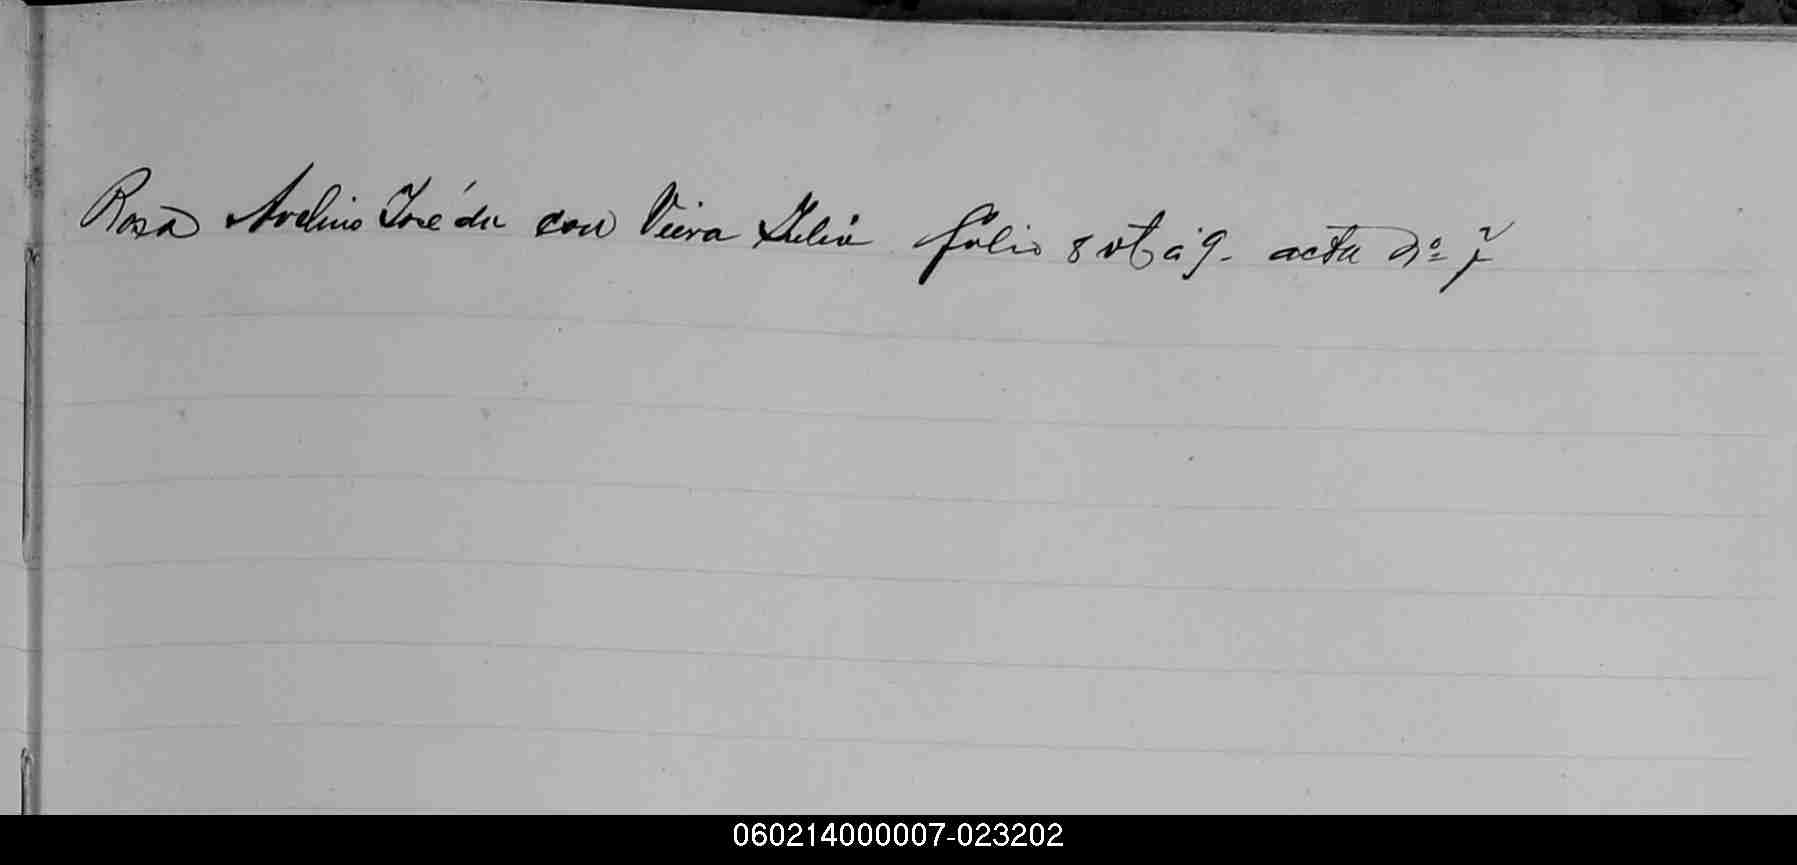 Rosa Avelino José da con Vieira Julia folio 8 vtº á 9. acta Nº 7
060214000007-023202